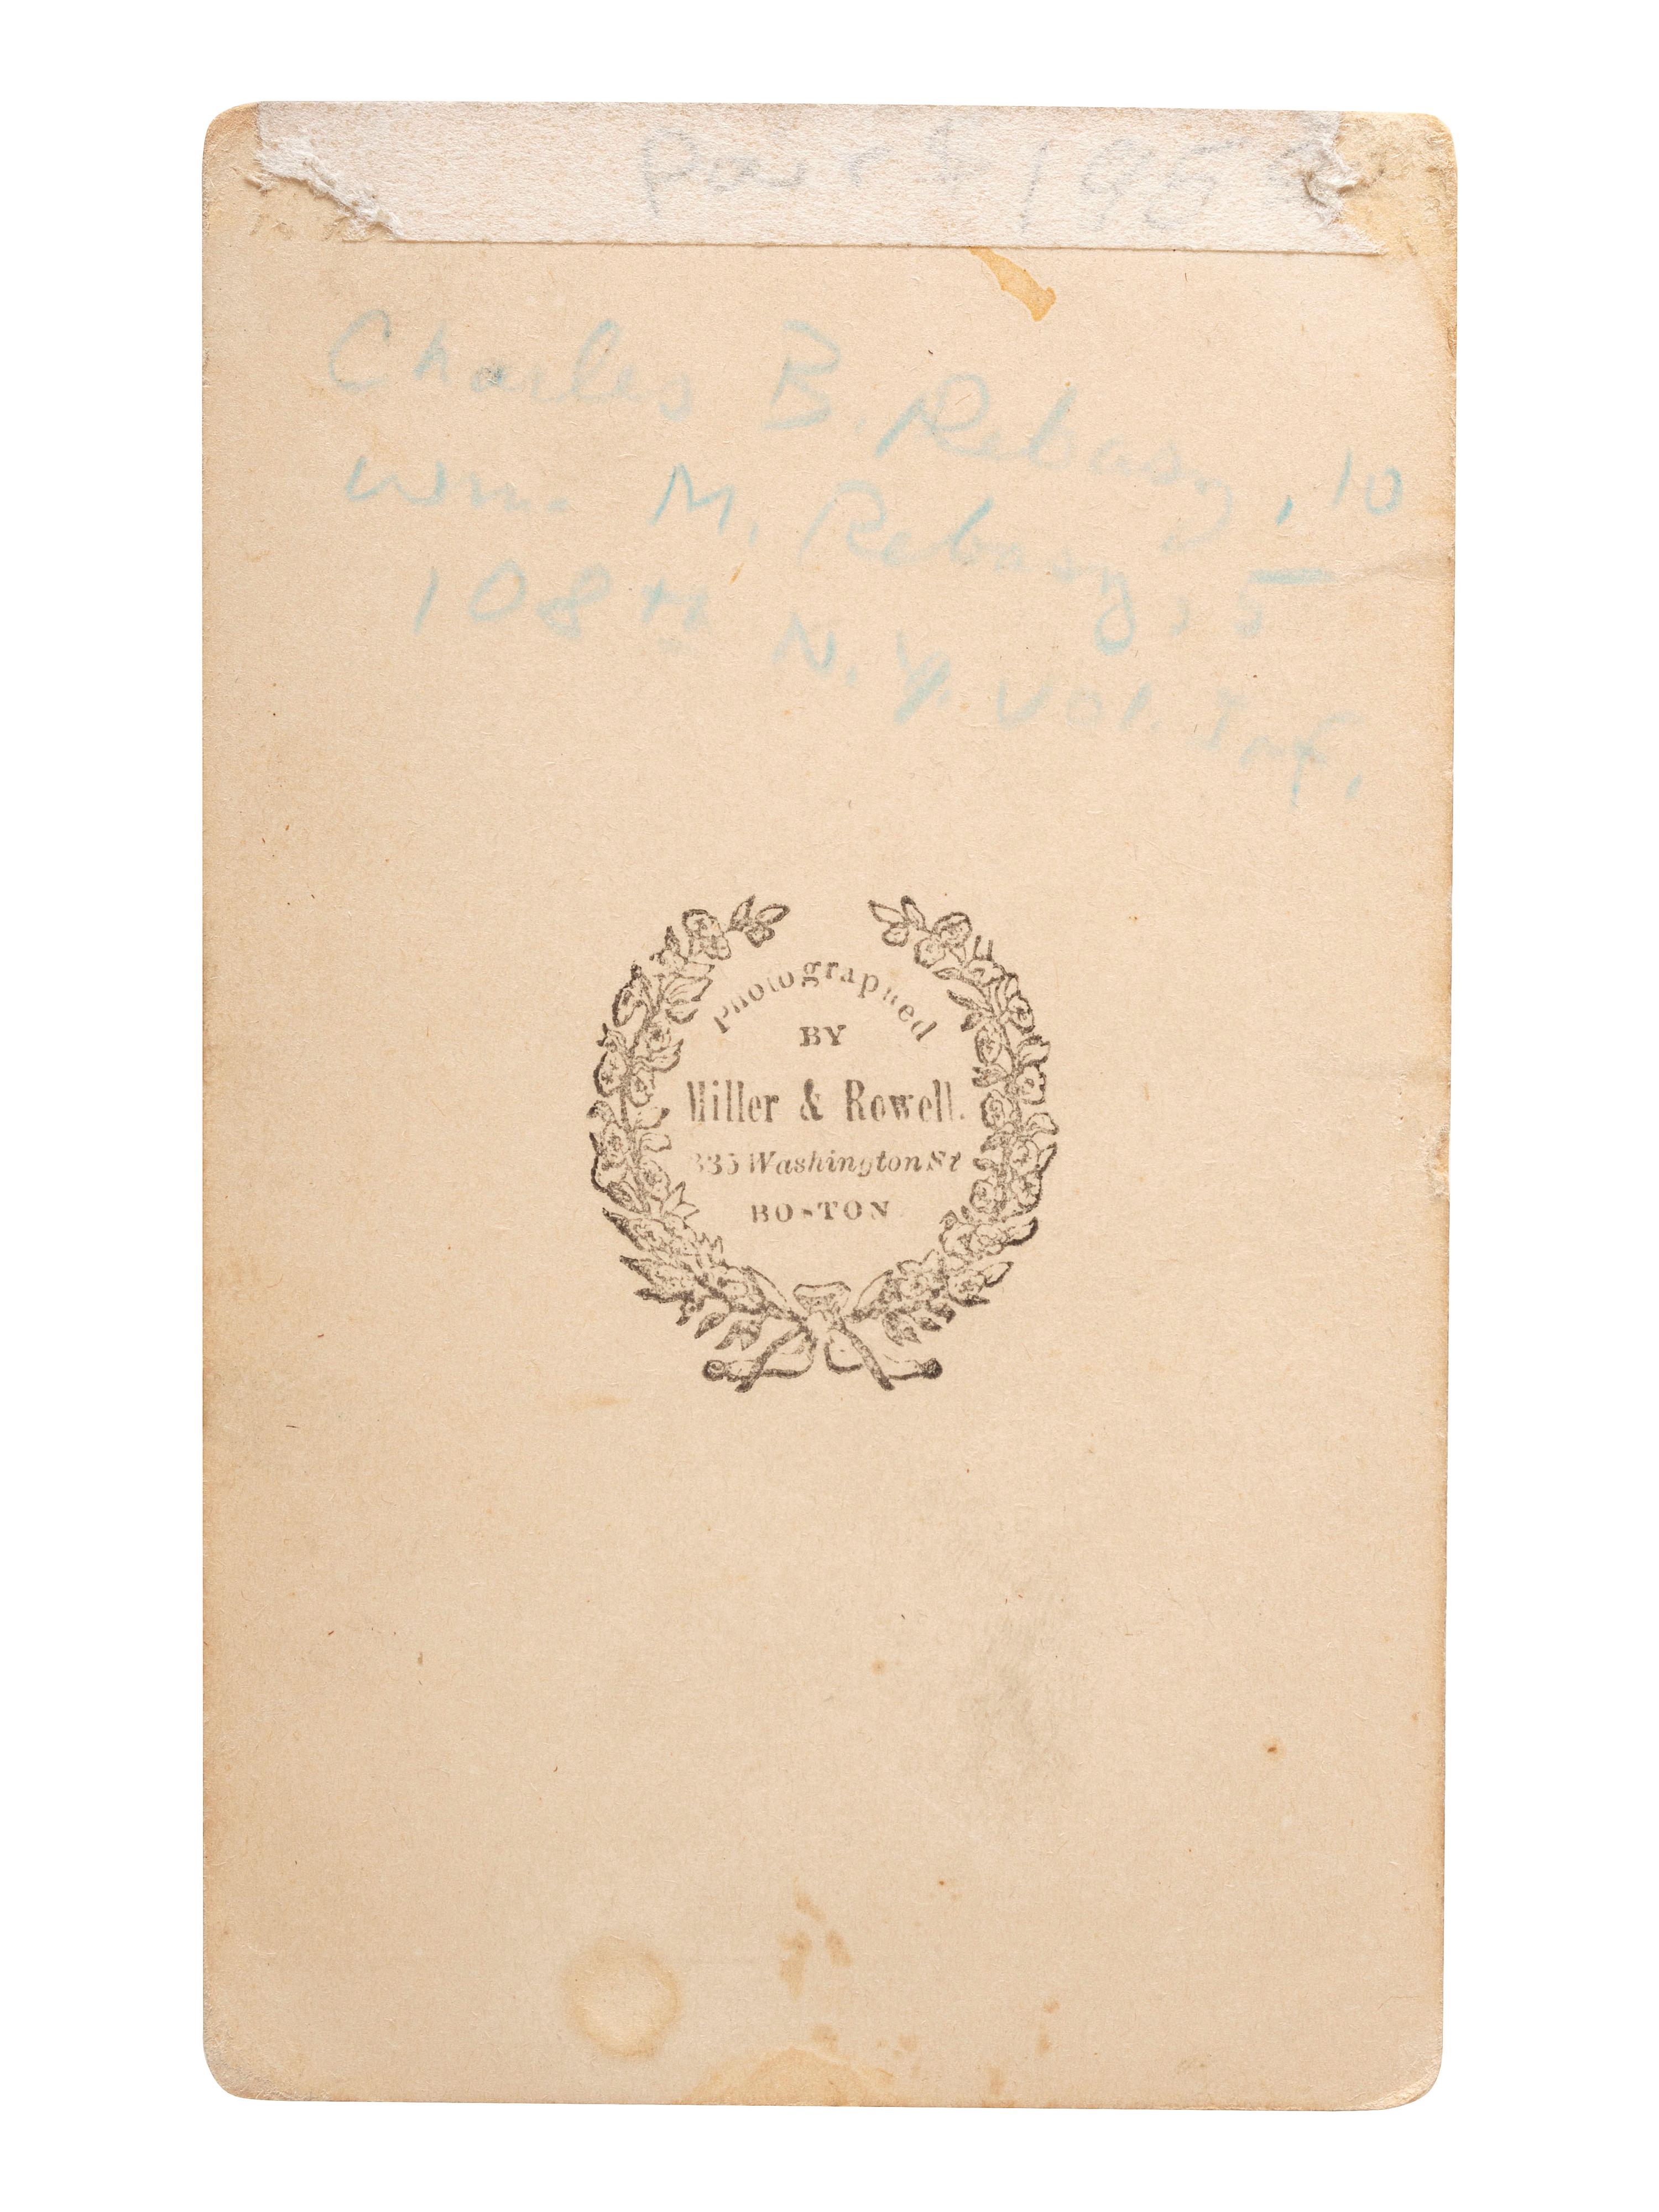 Charles B. Rebasy, 10
Wm. M. Rebasy, 5
108th N.Y. Vol. Inf.
Photographed
BY
Miller & Rowell.
335 Washington St
BOSTON